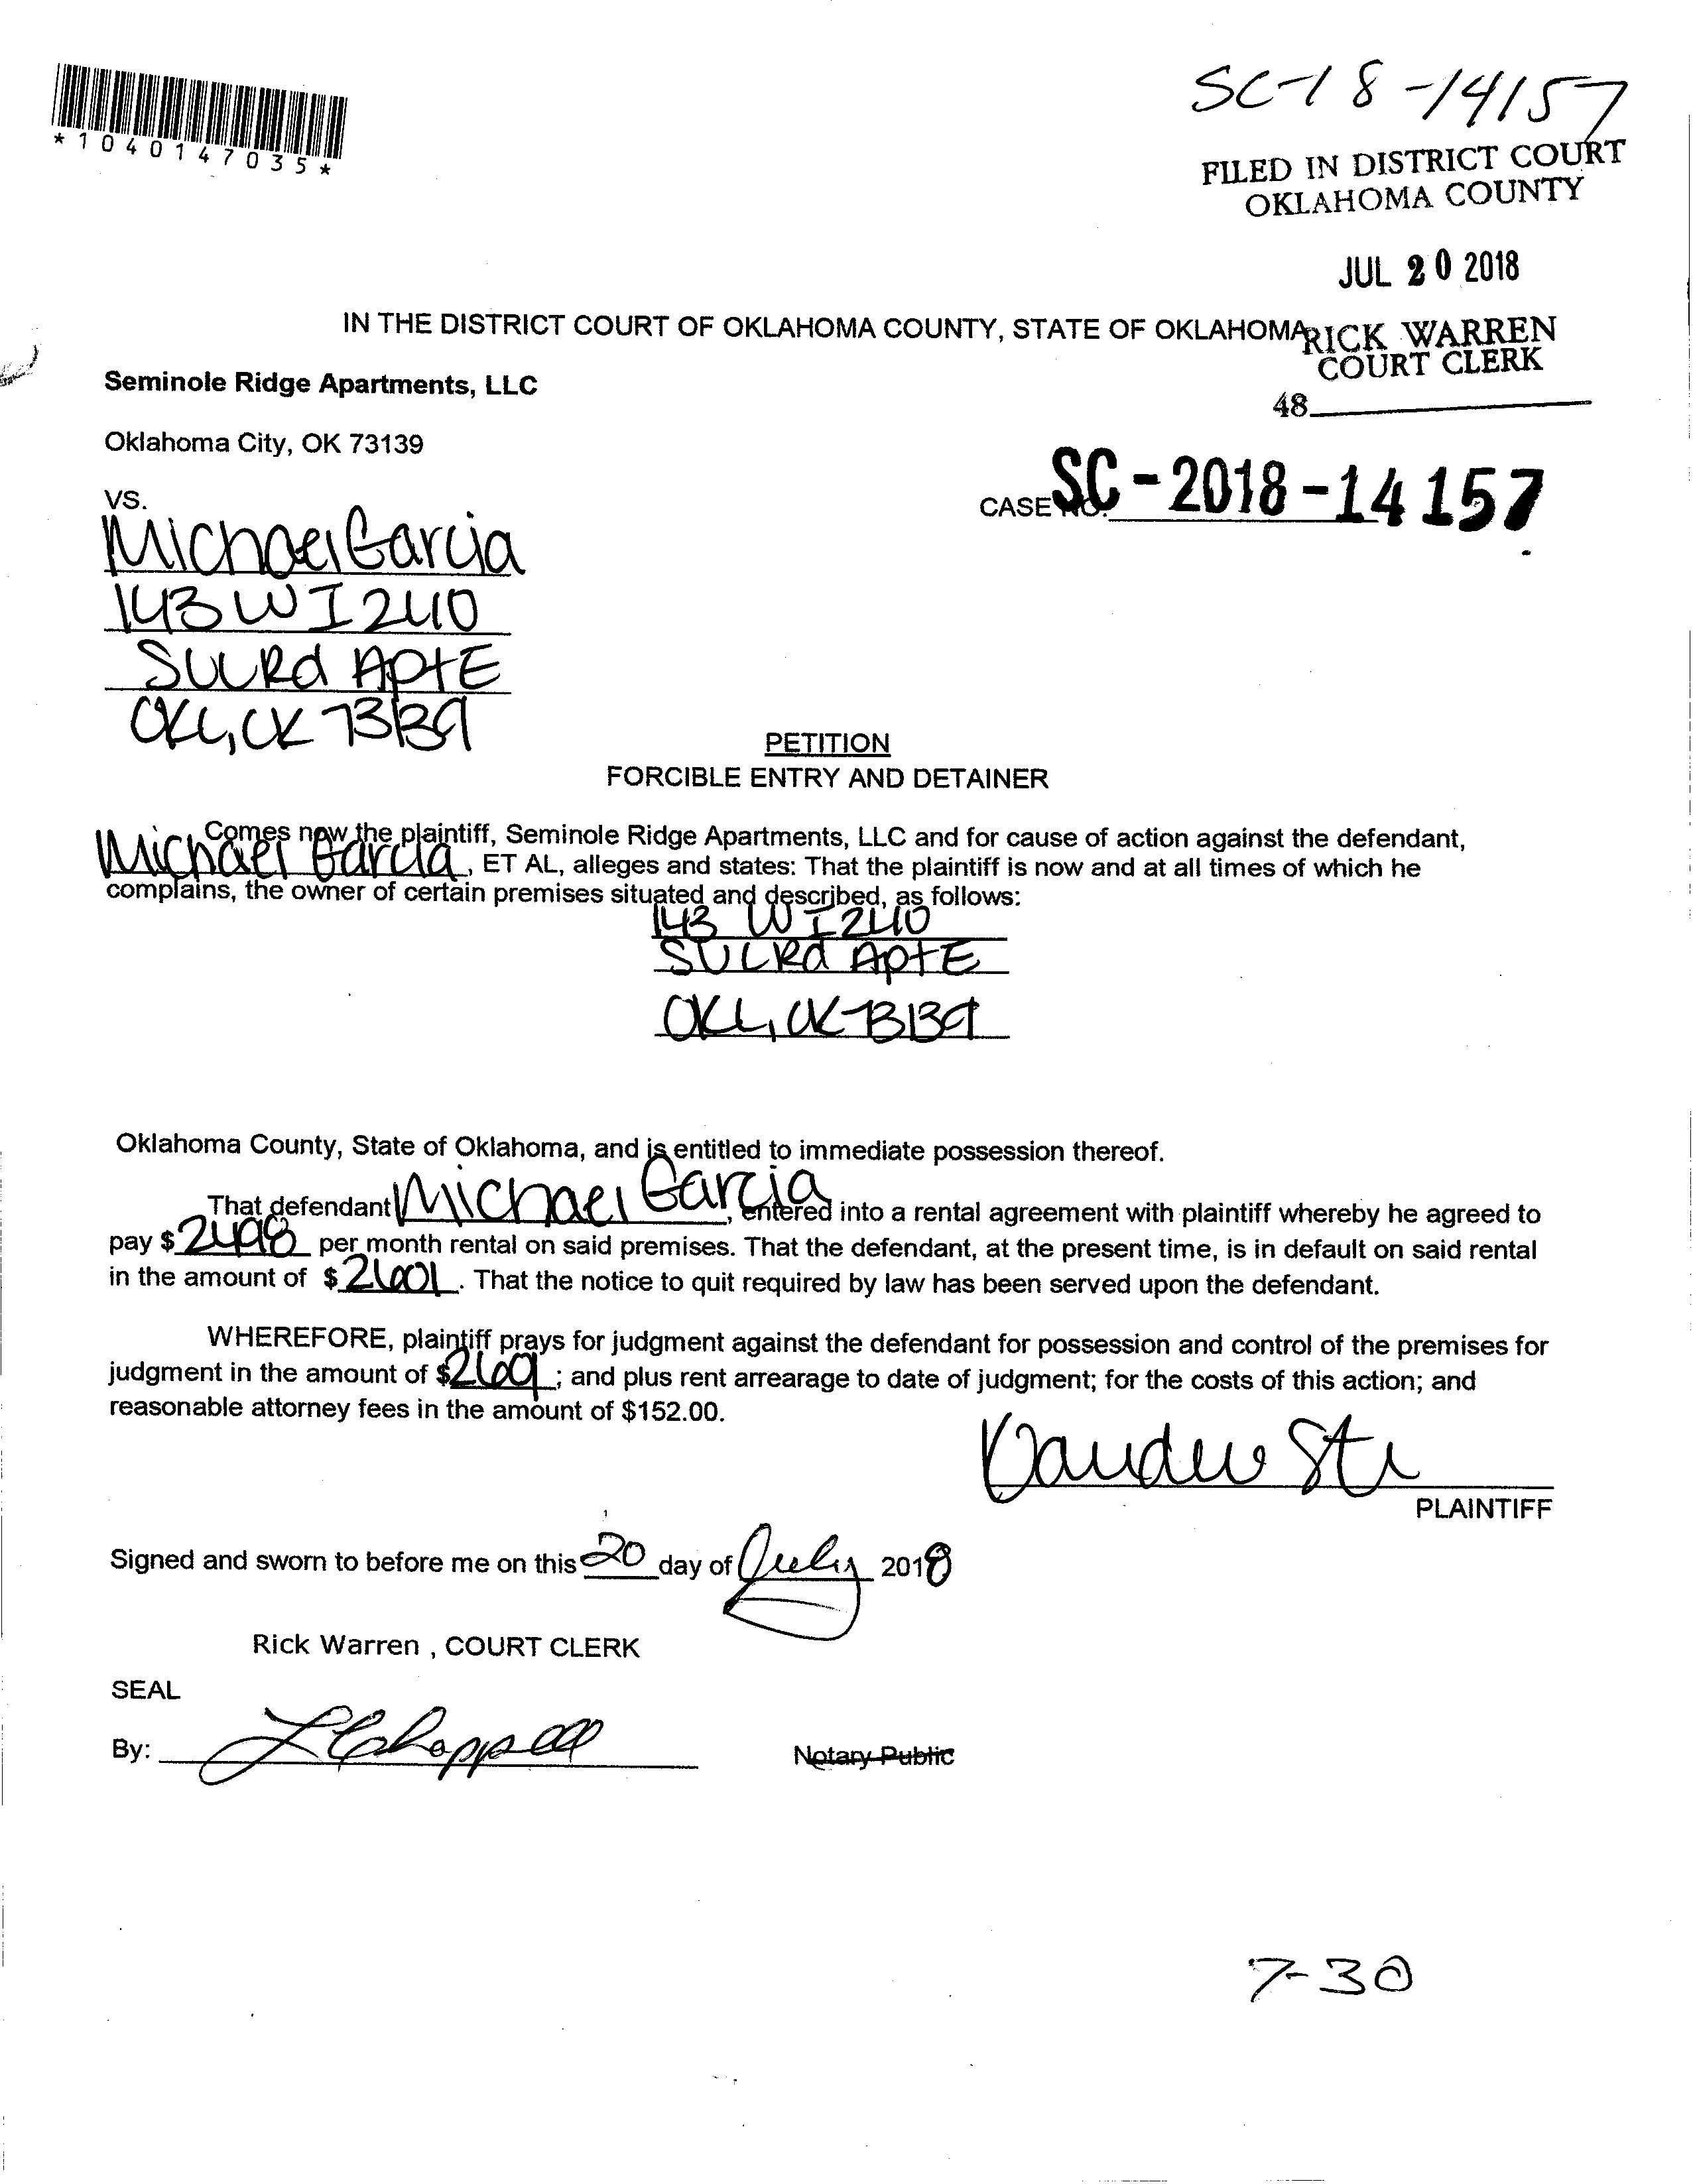 SC-18-14157
*1040147035*
FILED IN DISTRICT COURT
OKLAHOMA COUNTY
JUL 20 2018
IN THE DISTRICT COURT OF OKLAHOMA COUNTY, STATE OF OKLAHOMA
RICK WARREN
COURT CLERK
48
Seminole Ridge Apartments, LLC
Oklahoma City, OK 73139
CASE NO. SC-2018-14157
VS.
Michael Garcia
143 W I240
Rd Apt E
OKC, OK 73139
PETITION
FORCIBLE ENTRY AND DETAINER
Comes now the plaintiff, Seminole Ridge Apartments, LLC and for cause of action against the defendant,
Michael Garcia, ET AL, alleges and states: That the plaintiff is now and at all times of which he
complains, the owner of certain premises situated and described, as follows:
143 W I240
Rd Apt E
OKC, OK 73139
Oklahoma County, State of Oklahoma, and is entitled to immediate possession thereof.
That defendant Michael Garcia, entered into a rental agreement with plaintiff whereby he agreed to
pay $ 2498 per month rental on said premises. That the defendant, at the present time, is in default on said rental
in the amount of $ . That the notice to quit required by law has been served upon the defendant.
WHEREFORE, plaintiff prays for judgment against the defendant for possession and control of the premises for
judgment in the amount of $ ; and plus rent arrearage to date of judgment; for the costs of this action; and
reasonable attorney fees in the amount of $152.00.
PLAINTIFF
Signed and sworn to before me on this 20 day of July 2018
Rick Warren , COURT CLERK
SEAL
By: Chappell
Notary Public
7-30